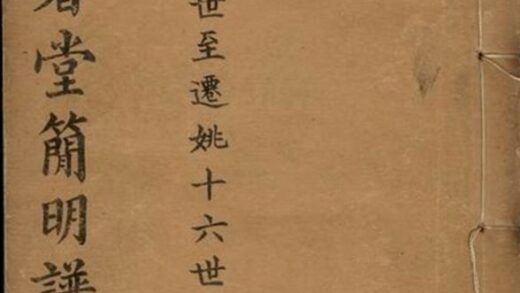 世至遷姚十六世
堂簡明譜